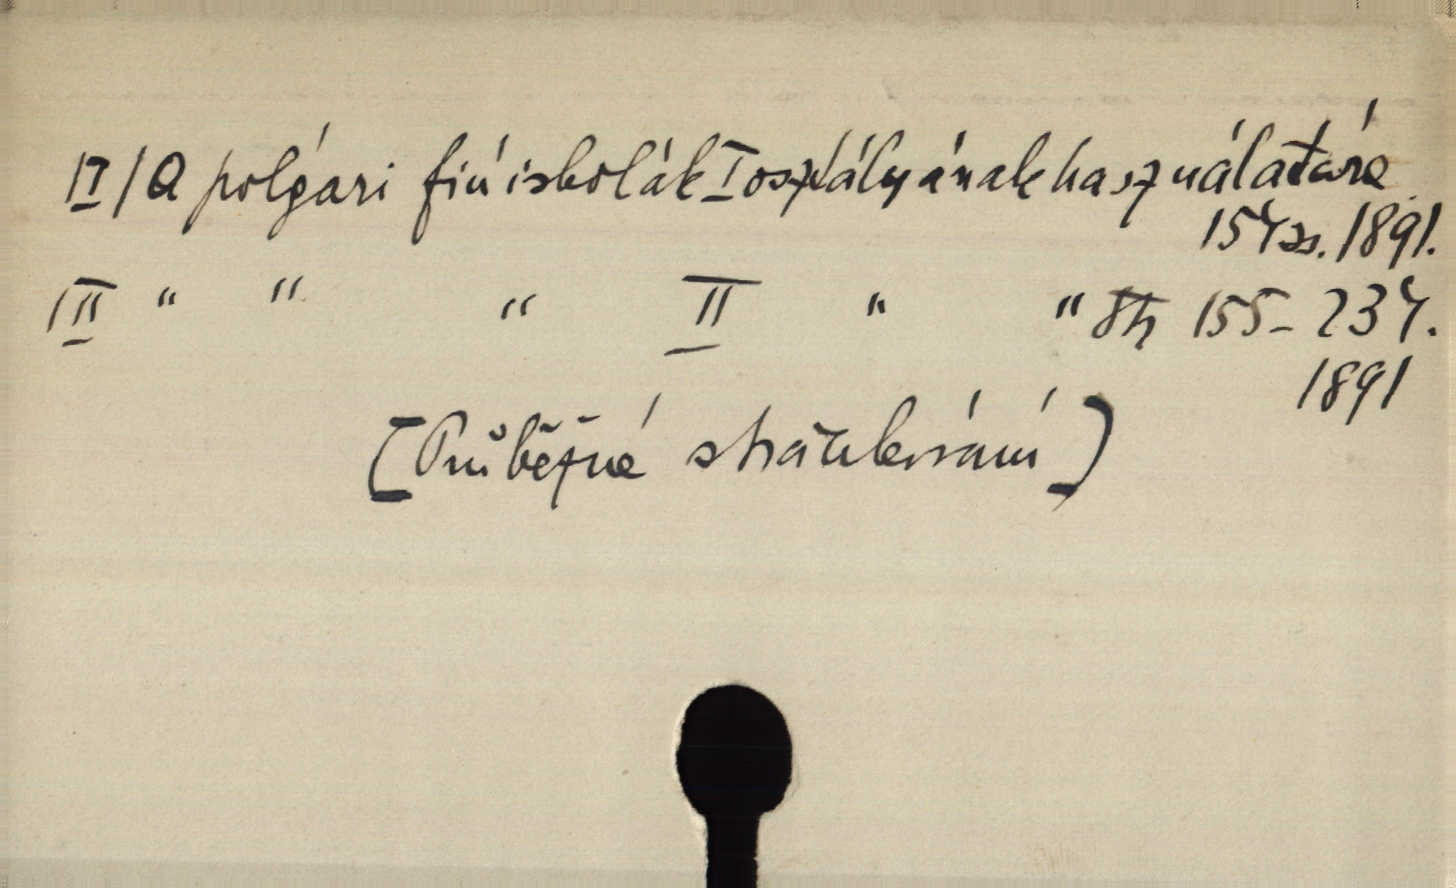 II/A polgári fiúiskolák I osztályának használatára
154 ss. 1891.
III " " " II " " Stz 155-234.
1891
[Průběžné stránkování]